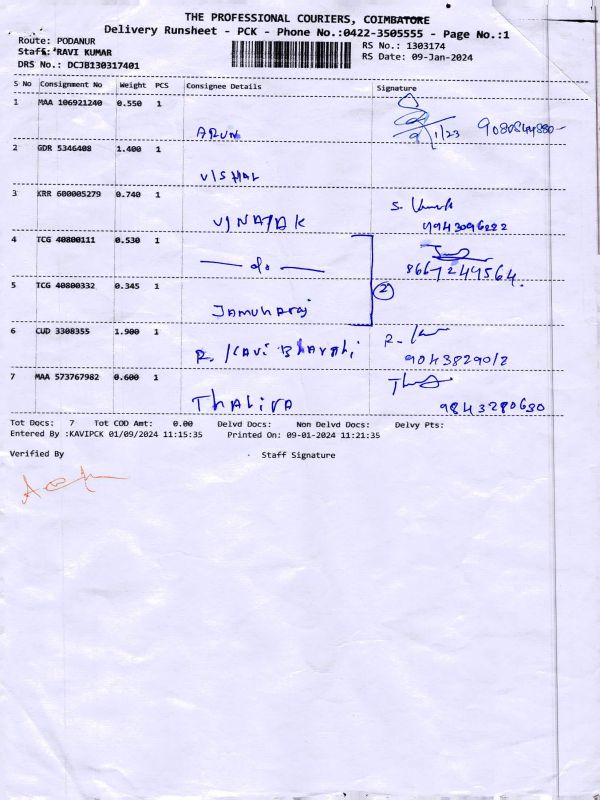 THE PROFESSIONAL COURIERS, COIMBATORE
Delivery Runsheet - PCK - Phone No.:0422-3505555 - Page No.:1
Route: PODANUR
RS No.: 1303174
Staff: RAVI KUMAR
RS Date: 09-Jan-2024
DRS No.: DCJB130317401
S No Consignment No Weight PCS Consignee Details Signature
1 MAA 106921240 0.550 1
ARUN 9/1/23
2 GDR 5346408 1.400 1
VISHAL
3 KRR 600005279 0.740 1
VINAYAK 9943096222
4 TCG 40800111 0.530 1
— do — 8667244564.
5 TCG 40800332 0.345 1 2
Jamunaraj
6 CUD 3308355 1.900 1
R. Kavi Bharathi 9043829012
7 MAA 573767982 0.600 1
9843280630
Tot Docs: 7 Tot COD Amt: 0.00 Delvd Docs: Non Delvd Docs: Delvy Pts:
Entered By :KAVIPCK 01/09/2024 11:15:35 Printed On: 09-01-2024 11:21:35
Verified By Staff Signature